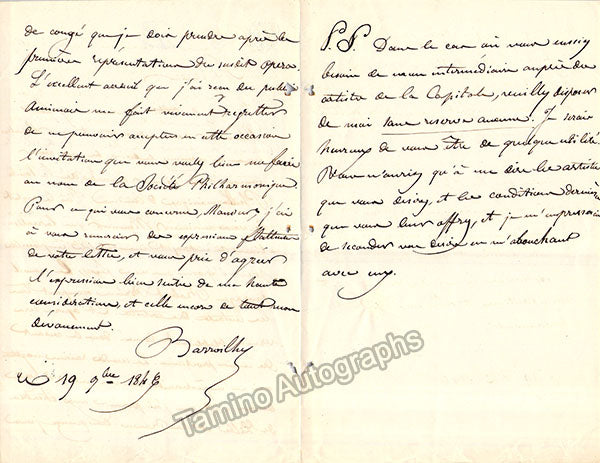 de congé que je dois prendre après la
première représentation du susdit opera.
L'excellent accueil que j'ai reçu du public
me fait vivement regretter
de ne pouvoir accepter en cette occasion
l'invitation que vous voulez bien me faire
au nom de la Société Philharmonique
Pour ce qui vous concerne, Monsieur, j'ai
à vous remercier des expressions flatteuses
de votre lettre, et vous prie d'agréer
l'expression bien sentie de ma haute
considération, et celle encore de tout mon
dévouement.
Barroilhet
19 9bre 184
P.S. Dans le cas où vous eussiez
besoin de mon intermédiaire auprès des
artistes de la Capitale, veuillez disposer
de moi sans reserve aucune. Je serais
heureux de vous être de quelque utilité.
Vous n'auriez qu'à me dire les artistes
que vous désirez, et les conditions dernières
que vous leur offrez, et je m'empresserai
de seconder vos désirs en m'abouchant
avec eux.
Tamino Autographs